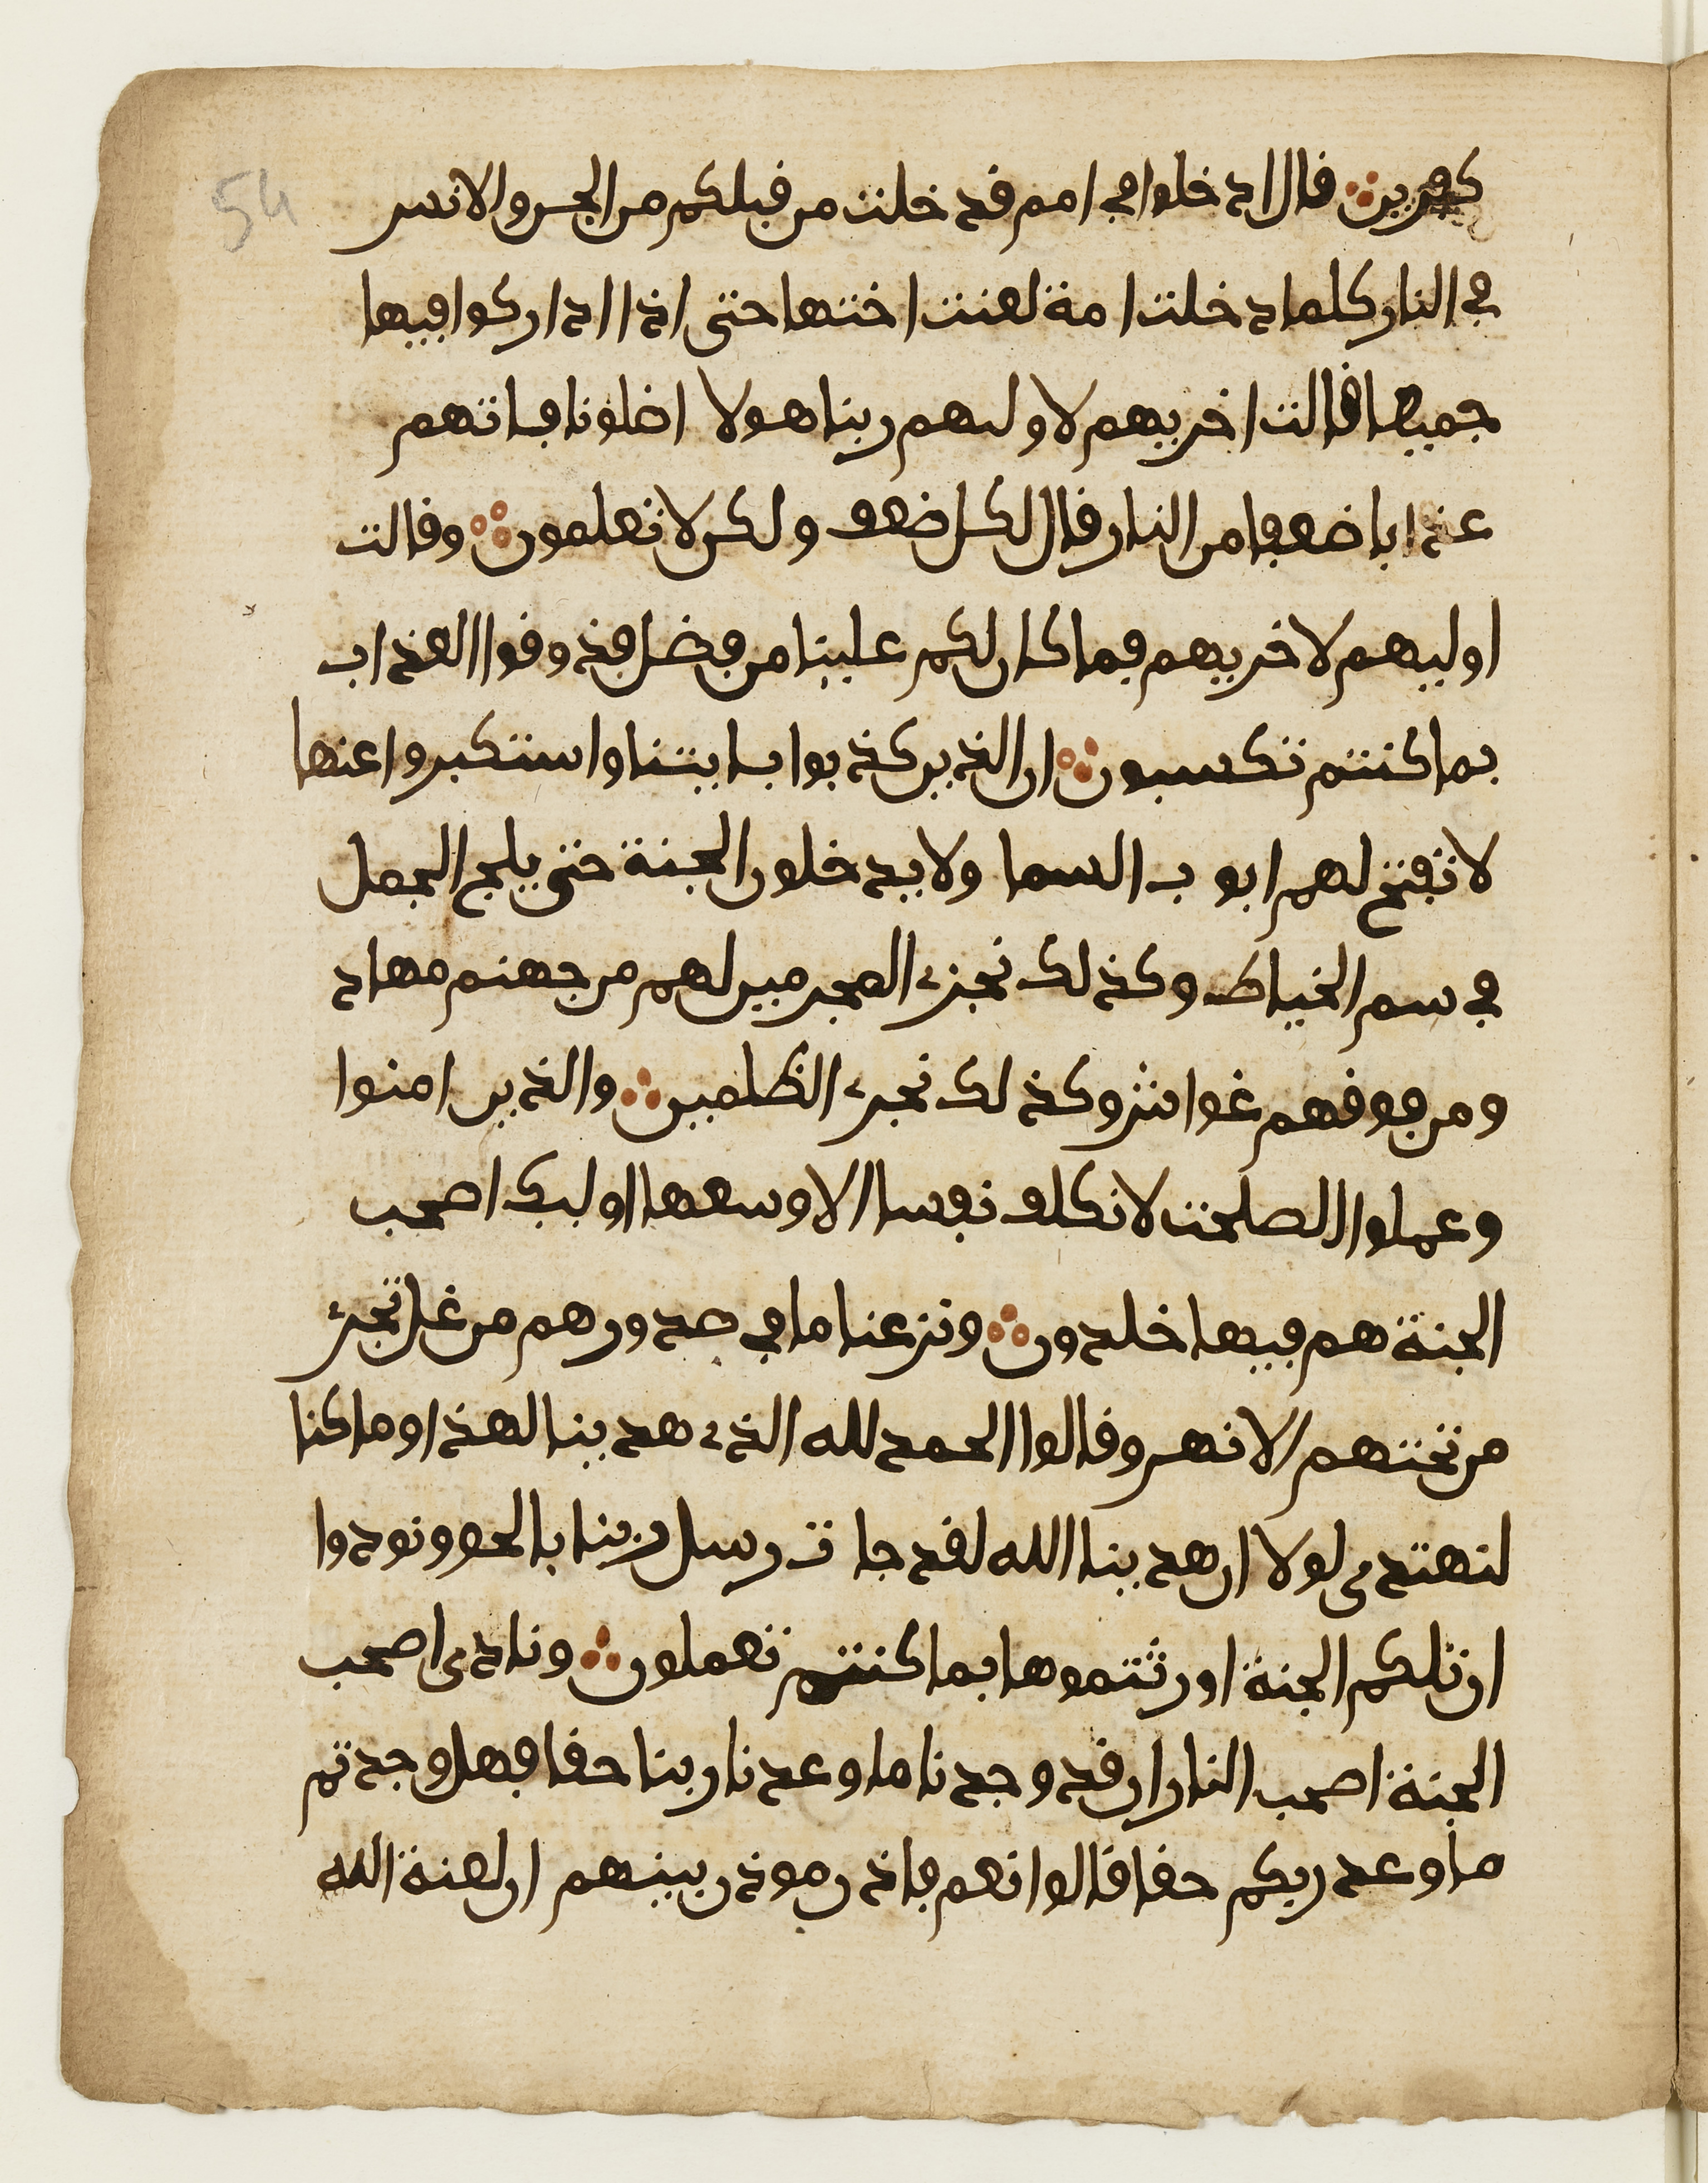 54
كفرين قال ادخلوا في امم قد خلت من قبلكم من الجن والانس
في النار كلما دخلت امة لعنت اختها حتى اذا اداركوا فيها
جميعا قالت اخريهم لاوليهم ربنا هولا اضلونا فاتهم
عذابا ضعفا من النار قال لكل ضعف ولكن لا تعلمون وقالت
اوليهم لاخريهم فما كان لكم علينا من فضل فذوقوا العذاب
بما كنتم تكسبون ان الذين كذبوا بايتنا واستكبروا عنها
لا تفتح لهم ابوب السما ولا يدخلون الجنة حتى يلج الجمل
في سم الخياط وكذلك نجزي المجرمين لهم من جهنم مهاد
ومن فوقهم غواش وكذلك نجزي الظلمين والذين امنوا
وعملوا الصلحت لا نكلف نفسا الا وسعها اوليك اصحب
الجنة هم فيها خلدون ونزعنا ما في صدورهم من غل تجري
من تحتهم الانهر وقالوا الحمد لله الذي هدينا لهذا وما كنا
لنهتدي لولا ان هدينا الله لقد جات رسل ربنا بالحق ونودوا
ان تلكم الجنة اورثتموها بما كنتم تعملون ونادى اصحب
الجنة اصحب النار ان قد وجدنا ما وعدنا ربنا حقا فهل وجدتم
ما وعد ربكم حقا قالوا نعم فاذن موذن بينهم ان لعنة الله